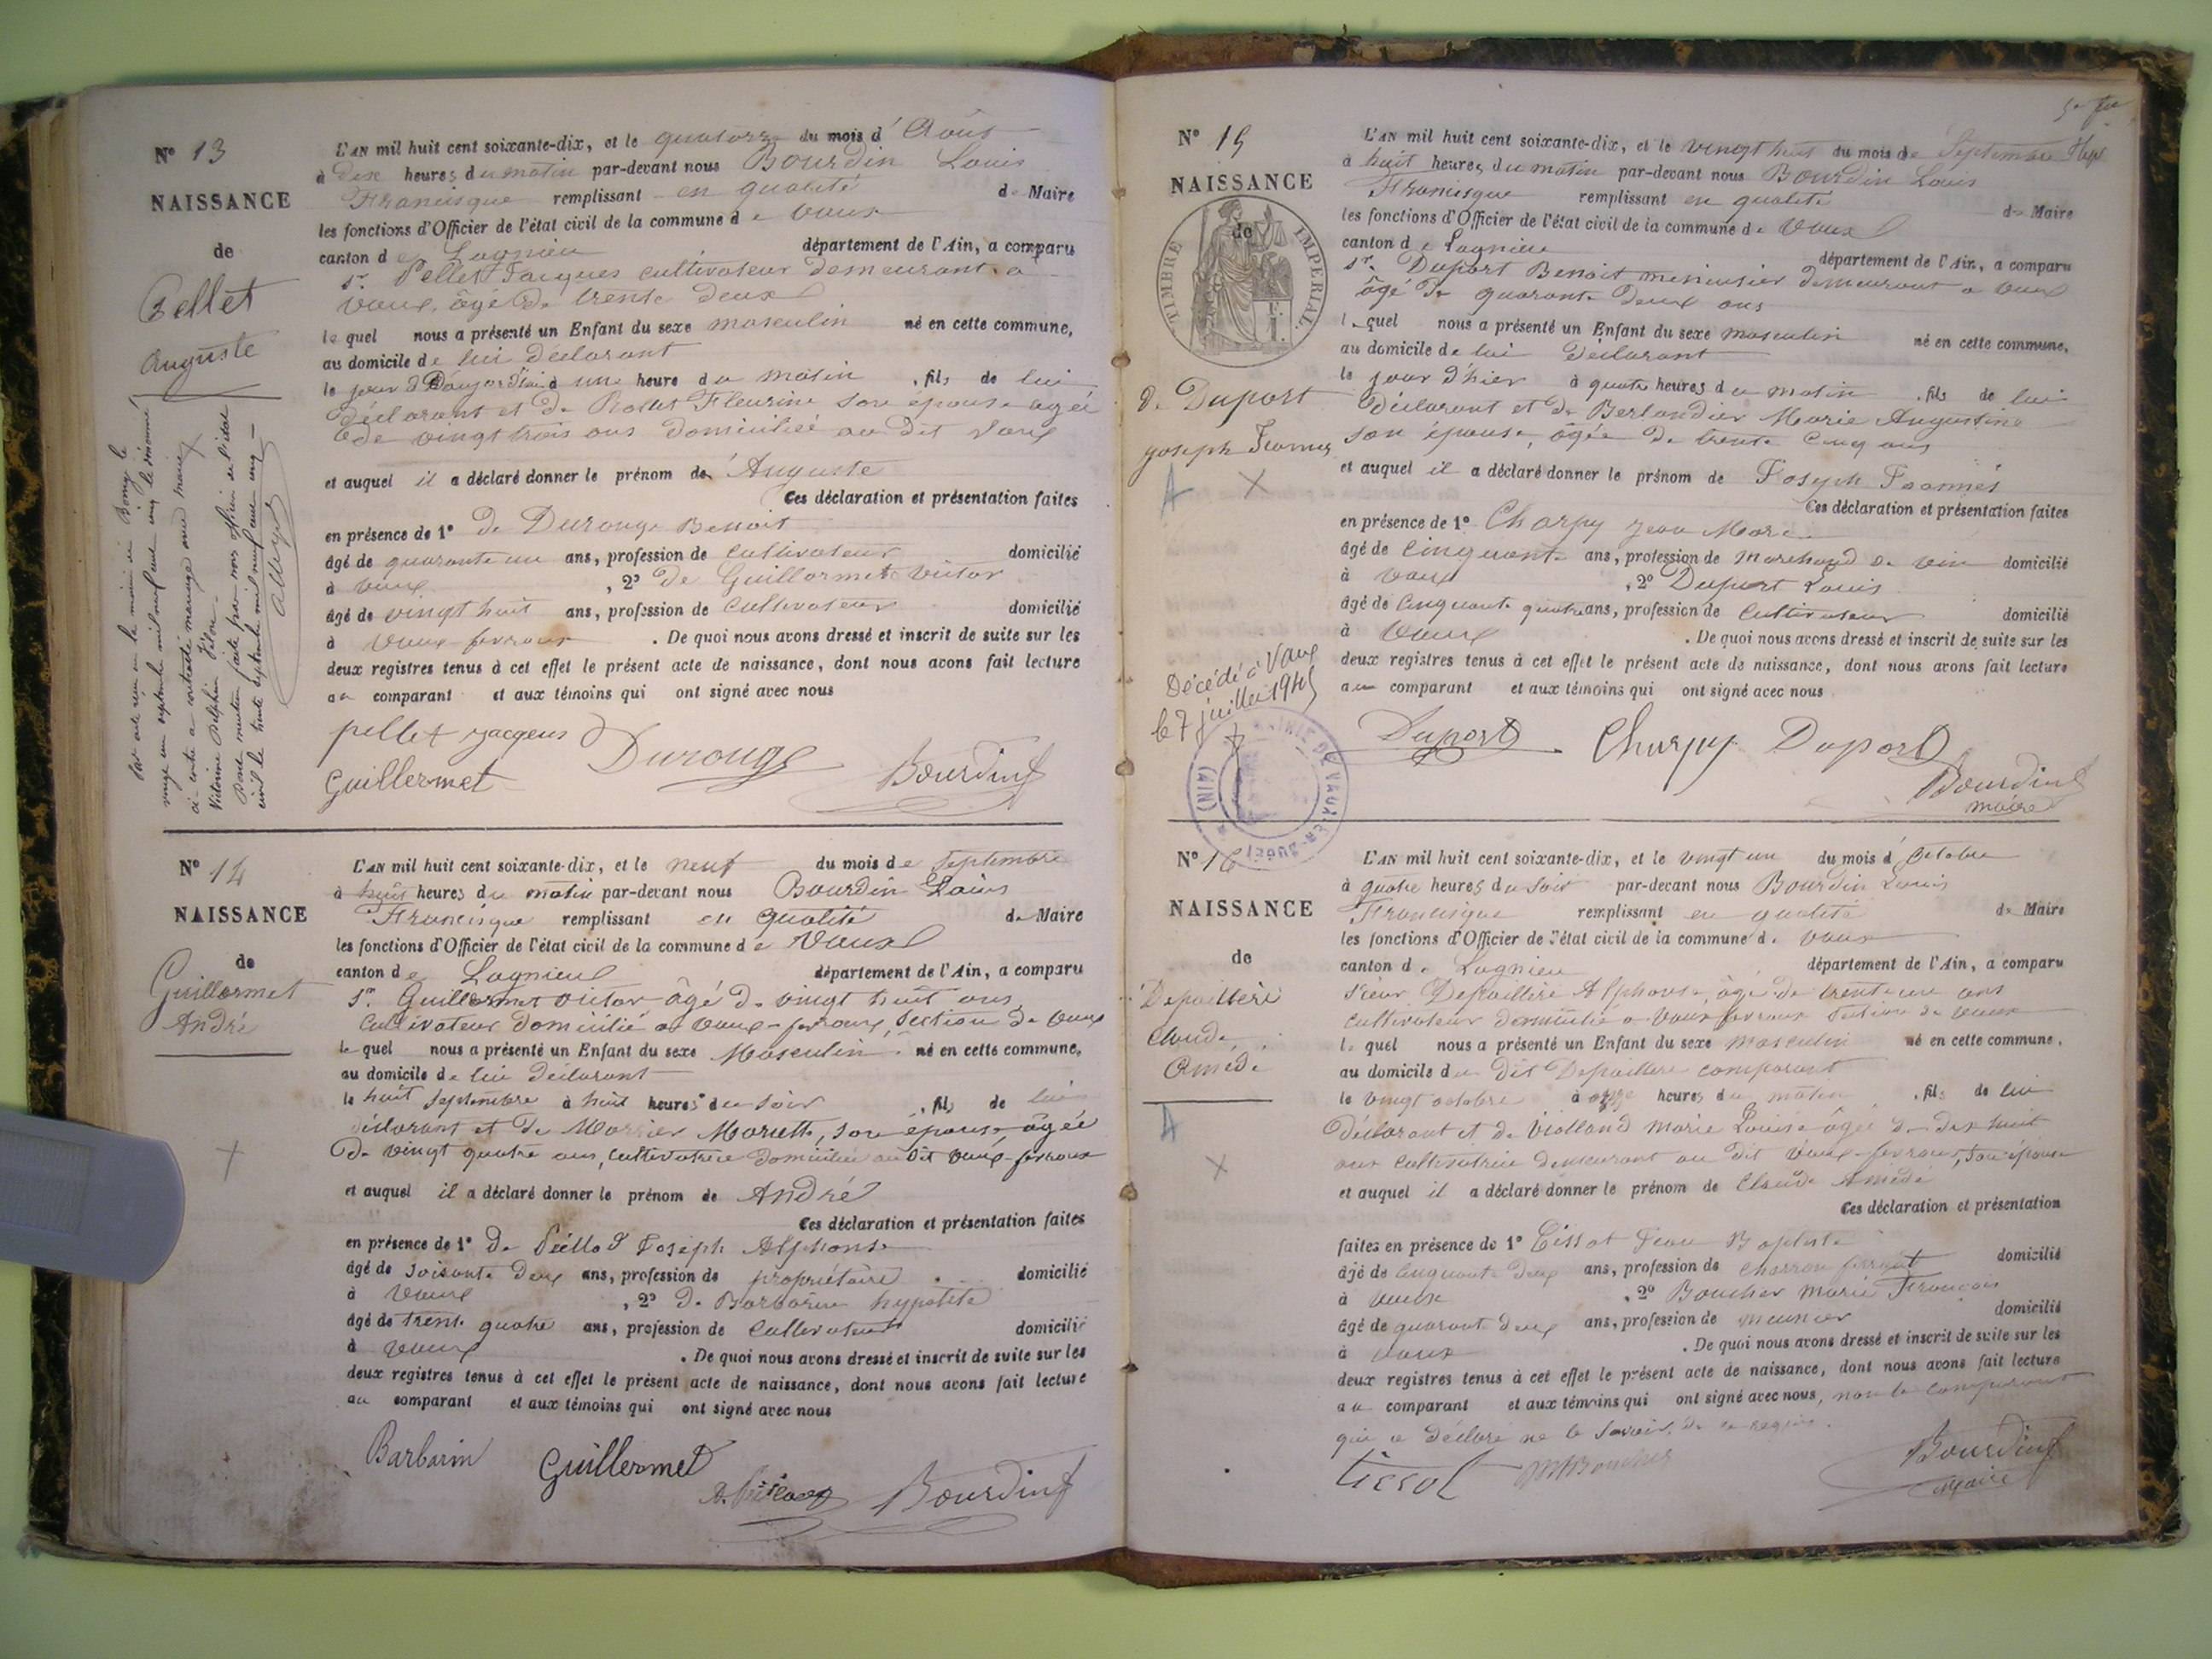 N° 13
NAISSANCE
de
Pellet
Auguste
L'AN mil huit cent soixante-dix, et le quatorze du mois d'Août
à dix heures du matin par-devant nous Bourdin Louis
Francisque remplissant en qualité de Maire
les fonctions d'Officier de l'état civil de la commune de Vaux
canton de Lagnieu département de l'Ain, a comparu
Sr. Pellet Jacques cultivateur demeurant a
Vaux, âgé de trente deux
lequel nous a présenté un Enfant du sexe masculin né en cette commune,
au domicile de lui déclarant
le jour d'aujourd'hui à une heure du matin, fils de lui
déclarant et de Rollet Fleurine son épouse agée
de vingt trois ans domiciliée au dit Vaux
et auquel il a déclaré donner le prénom de Auguste
Ces déclaration et présentation faites
en présence de 1° de Durouge Benoit
âgé de quarante un ans, profession de cultivateur domicilié
à Vaux, 2° de Guillermet Victor
âgé de vingt huit ans, profession de cultivateur domicilié
à Vaux fevroux. De quoi nous avons dressé et inscrit de suite sur les
deux registres tenus à cet effet le présent acte de naissance, dont nous avons fait lecture
au comparant et aux témoins qui ont signé avec nous
pellet jacques Durouge
Guillermet Bourdin f
ci-contre a contracté mariage avec
Victorine Delphine
N° 14
NAISSANCE
de
Guillermet
André
L'AN mil huit cent soixante-dix, et le neuf du mois de Septembre
à huit heures du matin par-devant nous Bourdin Louis
Francisque remplissant en qualité de Maire
les fonctions d'Officier de l'état civil de la commune de Vaux
canton de Lagnieu département de l'Ain, a comparu
Sr. Guillermet Victor âgé de vingt huit ans
cultivateur domicilié a Vaux-fevroux, section de Vaux
lequel nous a présenté un Enfant du sexe Masculin né en cette commune,
au domicile de lui déclarant
le huit Septembre à huit heures du soir, fils de lui
déclarant et de Mariette, son épouse âgée
de vingt quatre ans, cultivatrice domiciliée au dit Vaux-fevroux
et auquel il a déclaré donner le prénom de André
Ces déclaration et présentation faites
en présence de 1° de Joseph Alphonse
âgé de soixante deux ans, profession de propriétaire domicilié
à Vaux, 2° de Barbarin hypolite
âgé de trente quatre ans, profession de cultivateur domicilié
à Vaux. De quoi nous avons dressé et inscrit de suite sur les
deux registres tenus à cet effet le présent acte de naissance, dont nous avons fait lecture
au comparant et aux témoins qui ont signé avec nous
Barbarin Guillermet
Bourdin f
N° 15
NAISSANCE
TIMBRE IMPERIAL
de
de Duport
Joseph Joannes
A X
L'AN mil huit cent soixante-dix, et le vingt huit du mois de Septembre
à huit heures du matin par-devant nous Bourdin Louis
Francisque remplissant en qualité de Maire
les fonctions d'Officier de l'état civil de la commune de Vaux
canton de Lagnieu département de l'Ain, a comparu
Sr. Duport Benoit menuisier demeurant a Vaux
âgé de quarante deux ans
lequel nous a présenté un Enfant du sexe masculin né en cette commune,
au domicile de lui déclarant
le jour d'hier à quatre heures du matin, fils de lui
déclarant et de Berlandier Marie Augustine
son épouse, âgée de trente cinq ans
et auquel il a déclaré donner le prénom de Joseph Joannès
Ces déclaration et présentation faites
en présence de 1° Charpy Jean Marie
âgé de cinquante ans, profession de marchand de vin domicilié
à Vaux, 2° Duport Louis
âgé de cinquante quatre ans, profession de cultivateur domicilié
à Vaux. De quoi nous avons dressé et inscrit de suite sur les
deux registres tenus à cet effet le présent acte de naissance, dont nous avons fait lecture
au comparant et aux témoins qui ont signé avec nous
Décédé à Vaux
le 7 juillet 1945
MAIRIE DE VAUX-EN-BUGEY (AIN)
Duport Charpy Duport
Bourdin f
maire
N° 16
NAISSANCE
de
Depaillère
Claude
Amédé
A
X
L'AN mil huit cent soixante-dix, et le vingt un du mois d'Octobre
à quatre heures du soir par-devant nous Bourdin Louis
Francisque remplissant en qualité de Maire
les fonctions d'Officier de l'état civil de la commune de Vaux
canton de Lagnieu département de l'Ain, a comparu
sieur Depaillère Alphonse, âgé de trente un ans
cultivateur domicilié a Vaux fevroux section de Vaux
lequel nous a présenté un Enfant du sexe masculin né en cette commune,
au domicile du dit Depaillère comparant
le vingt octobre à onze heures du matin, fils de lui
déclarant et de Violland Marie Louise âgée de dix huit
ans cultivatrice demeurant au dit Vaux-fevroux, son épouse
et auquel il a déclaré donner le prénom de Claude Amédé
Ces déclaration et présentation
faites en présence de 1° Tissot Jean Baptiste
âgé de cinquante deux ans, profession de charron domicilié
à Vaux, 2° Boucher Marie François
âgé de quarante deux ans, profession de meunier domicilié
à Vaux. De quoi nous avons dressé et inscrit de suite sur les
deux registres tenus à cet effet le présent acte de naissance, dont nous avons fait lecture
au comparant et aux témoins qui ont signé avec nous, non le comparant
qui a déclaré ne le savoir, de ce requis.
tissot Boucher Bourdin f
Maire